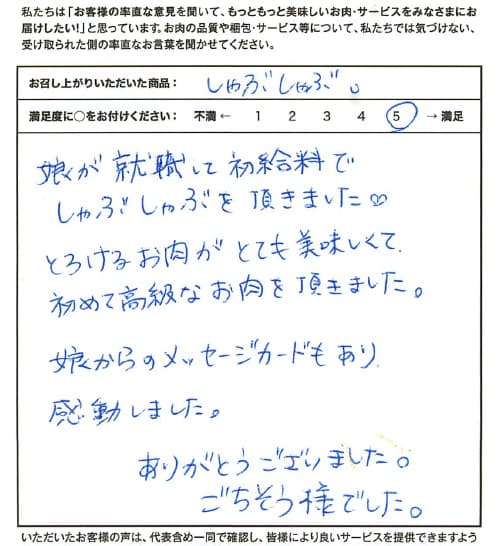 私たちは「お客様の率直な意見を聞いて、もっともっと美味しいお肉・サービスをみなさまにお
届けしたい!」と思っています。お肉の品質や梱包・サービス等について、私たちでは気づけない、
受け取られた側の率直なお言葉を聞かせてください。
お召し上がりいただいた商品: しゃぶしゃぶ。
満足度に○をお付けください: 不満 ← 1 2 3 4 5 → 満足
娘が就職して初給料で
しゃぶしゃぶを頂きました♡
とろけるお肉がとても美味しくて、
初めて高級なお肉を頂きました。
娘からのメッセージカードもあり、
感動しました。
ありがとうございました。
ごちそう様でした。
いただいたお客様の声は、代表含め一同で確認し、皆様により良いサービスを提供できますよう